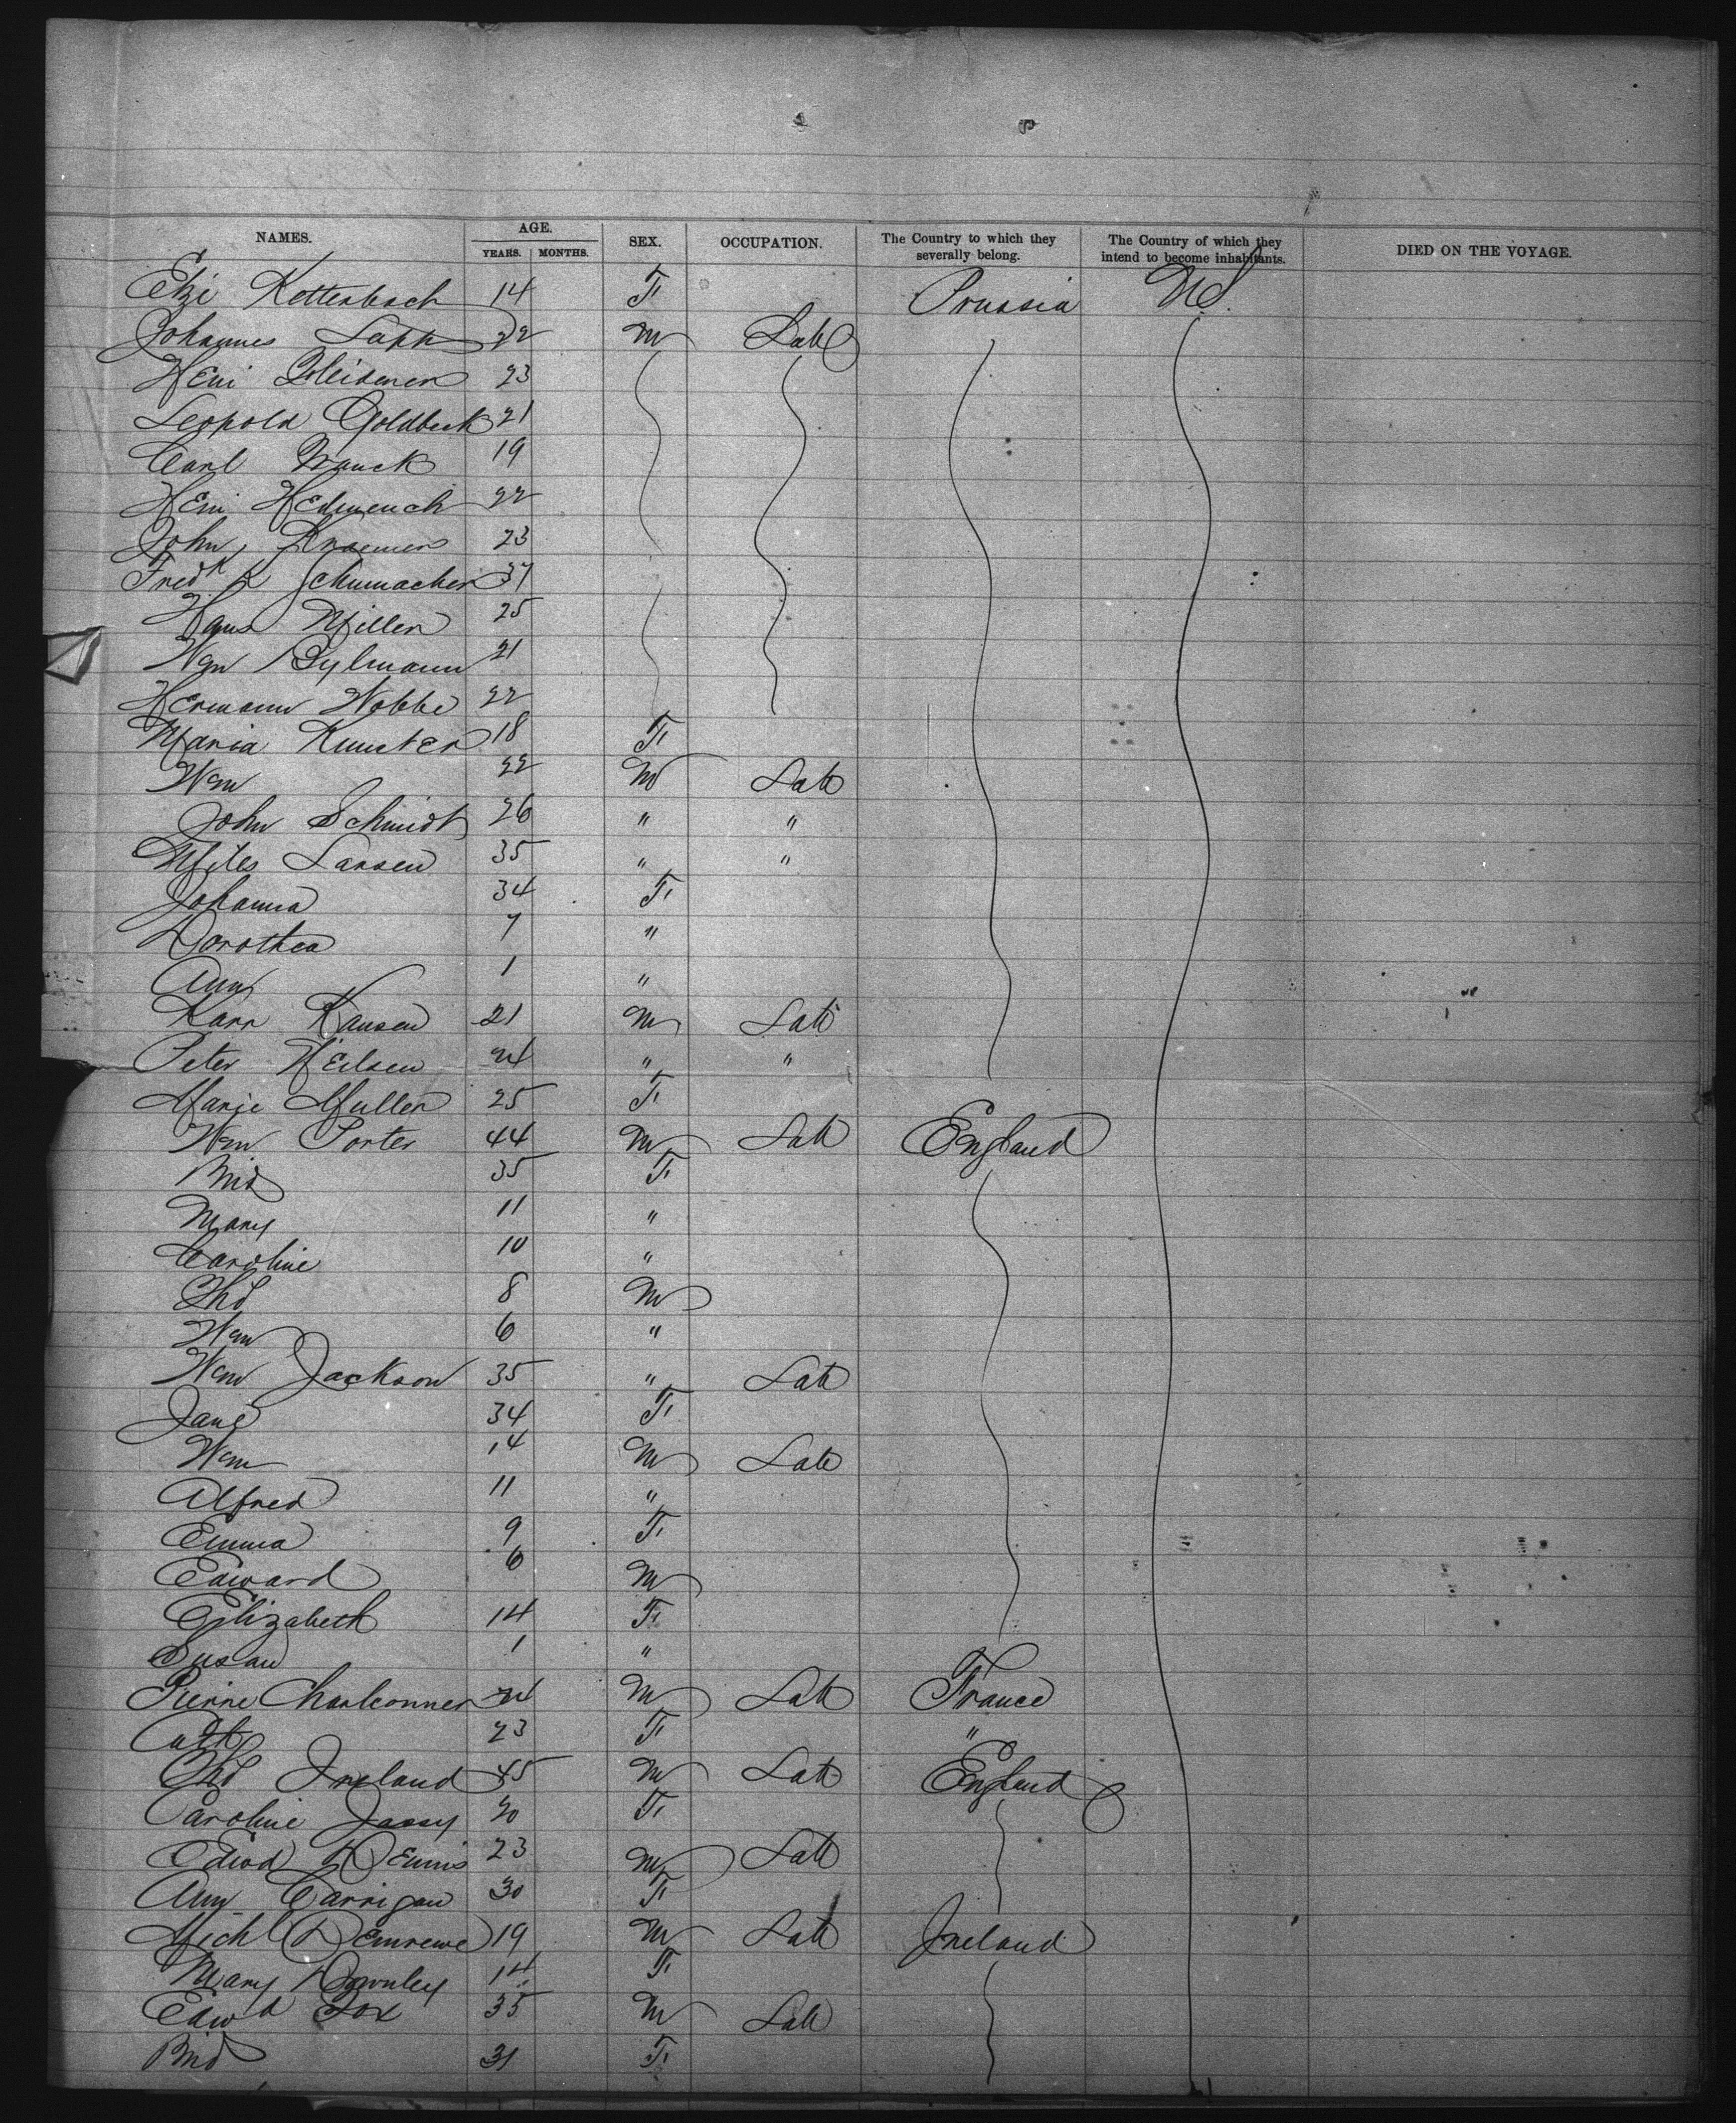 NAMES. AGE. YEARS. MONTHS. SEX. OCCUPATION. The Country to which they severally belong. The Country of which they intend to become inhabitants. DIED ON THE VOYAGE.
Elzi Kettenbach 14 F Prussia US.
Johannes Lapp 22 M Lab
Heni 23
Leopold Goldbeck 21
Carl 19
Heni 22
John Kraemer 23
Fredk Schumacher 37
Hans Miller 25
Wm Bylmann 21
Hermann Wobbe 22
Maria Kunster 18 F
Wm 22 M Lab
John Schmidt 26 " "
Miles Larsen 35 " "
Johanna 34 F
Dorothea 7 "
Ann 1 "
Karr Kansen 21 M Lab
Peter Heilsen 24 " "
Marie Muller 25 F
Wm Porter 44 M Lab England
Brid 35 F
Mary 11 "
Caroline 10 "
Thos 8 M
Wm 6 "
Wm Jackson 35 " Lab
Jane 34 F
Wm 14 M Lab
Alfred 11 "
Emma 9 F
Edward 6 M
Elizabeth 14 F
Susan 1 "
Pierre Charbonner 24 M Lab France
Cath 23 F "
Ireland 45 M Lab England
Caroline Jassy 20 F
Edwd Dennis 23 M Lab
Ann Carrigan 30 F
Michl 19 M Lab Ireland
Mary Downley 14 F
Edwd Fox 35 M Lab
Brid 31 F